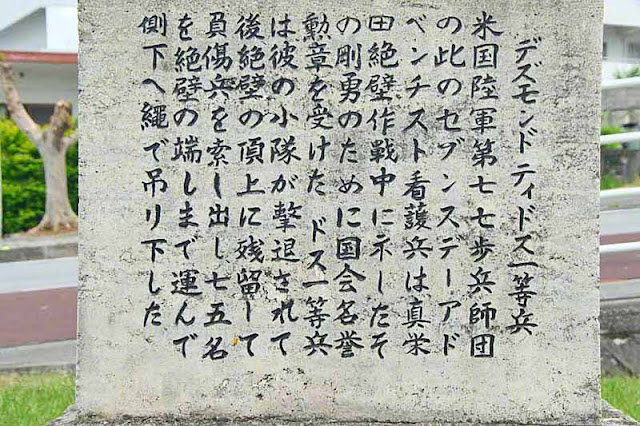 デズモンド ティドス一等兵
米国陸軍第七七歩兵師団
の此のセブンスデーアド
ベンチスト看護兵は真栄
田絶壁作戦中に示したそ
の剛勇のために国会名誉
勲章を受けた ドス一等兵
は彼の小隊が撃退されて
後絶壁の頂上に残留して
負傷兵を索し出し七五名
を絶壁の端しまで運んで
側下へ繩で吊り下した